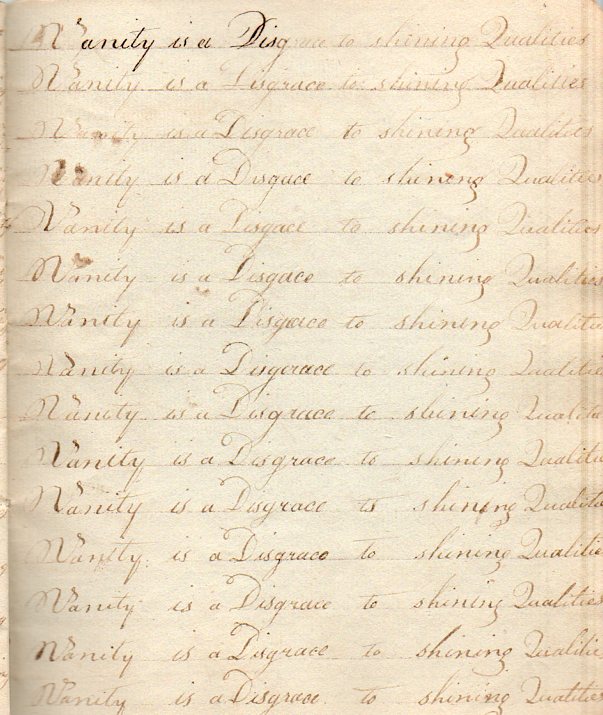 Vanity is a Disgrace to shining Qualities
Vanity is a Disgrace to shining Qualities
Vanity is a Disgrace to shining Qualities
Vanity is a Disgace to shining Qualities
Vanity is a Disgace to shining Qualities
Vanity is a Disgace to shining Qualities
Vanity is a Disgrace to shining Qualitie
Vanity is a Disgrace to shining Qualitie
Vanity is a Disgrace to shining Qualitie
Vanity is a Disgrace to shining Qualitie
Vanity is a Disgrace to shining Qualitie
Vanity is a Disgrace to shining Qualitie
Vanity is a Disgrace to shining Qualities
Vanity is a Disgrace to shining Qualitie
Vanity is a Disgrace to shining Qualities